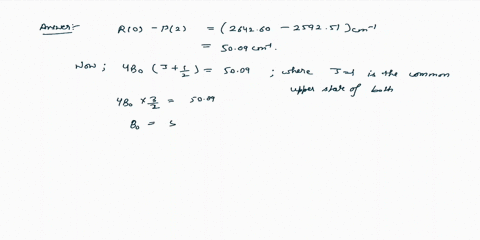 Answer:- R(0) - P(2) = (2642.60 - 2592.51) cm⁻¹
= 50.09 cm⁻¹.
Now; 4B₀ (J + 1/2) = 50.09 ; where J=1 is the common
upper state of both
4B₀ × 3/2 = 50.09
B₀ = s